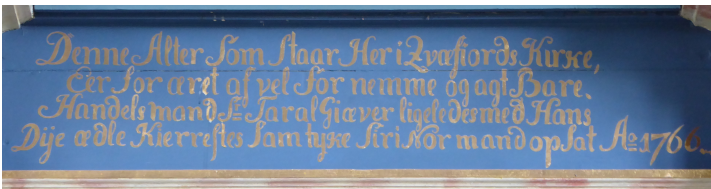 Denne Alter Som Staar Her i Qvæfiords Kirke,
Eer for æret af vel for nemme og agt Bare.
Handels mand Sr Taral Giæver ligeledes med Hans
Dije ædle Kierrestes Samtyke Stri Nor mand opSat Ao 1766.